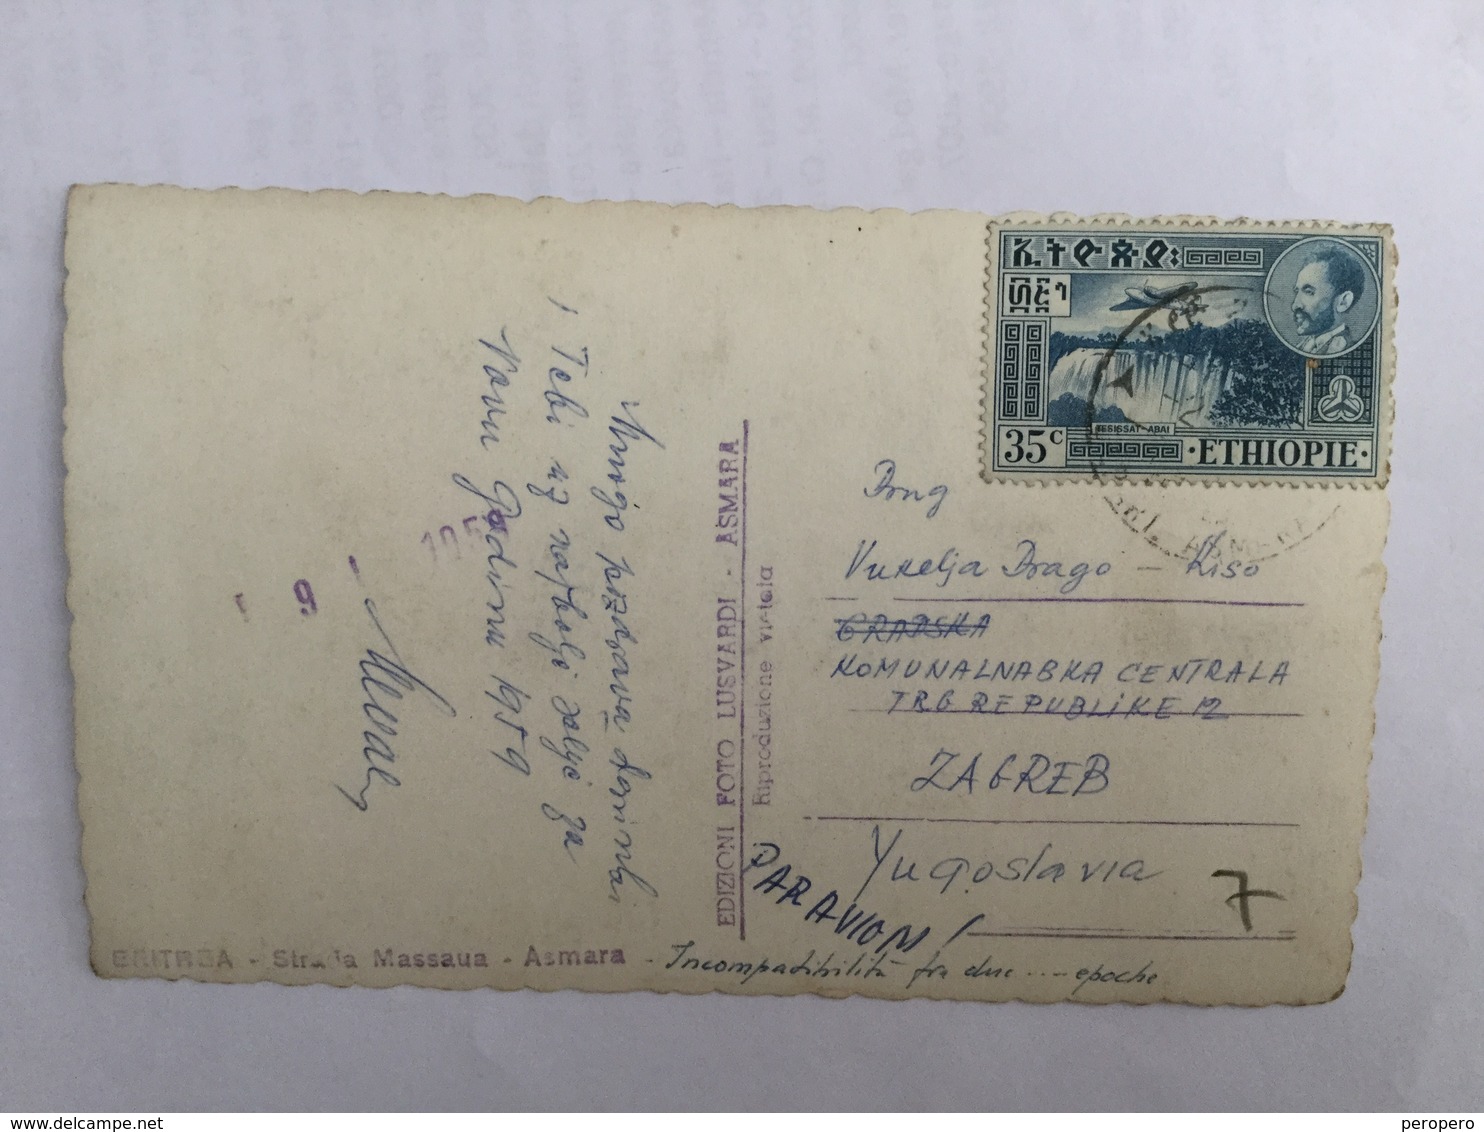 Mnogo pozdrava
i Tebi uz najbolje želje za
Novu Godinu 1959
195
9
EDIZIONI FOTO LUSVARDI - ASMARA
Riproduzione vietata
ኢትዮጵያ፡
35c
TESISSAT-ABAI
·ETHIOPIE·
Drug
Vukelja Drago - Kiso
GRADSKA
KOMUNALNA BKA CENTRALA
TRG REPUBLIKE 12
ZAGREB
Yugoslavia
PAR AVION!
7
ERITREA - Strada Massaua - Asmara - Incompatibilità fra due .... epoche
peropero